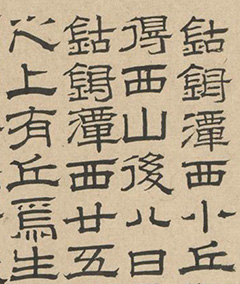 鈷鉧潭西小丘
得西山後八日
鈷鉧潭西廿五
之上有丘焉生